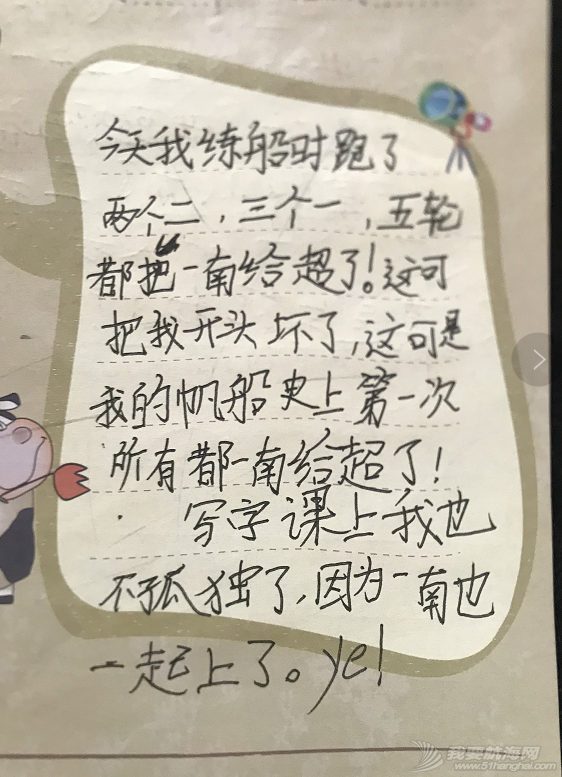 今天我练船时跑了
两个二，三个一，五轮
都把一南给超了！这可
把我开头坏了，这可是
我的帆船史上第一次
所有都一南给超了！
写字课上我也
不孤独了，因为一南也
一起上了。ye！
我要航海网
www.51hanghai.com